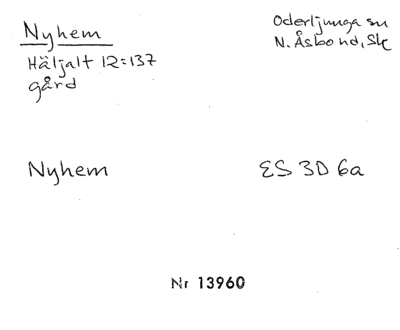 Nyhem
Häljalt 12:137
gård
Oderljunga sn
N. Åsbo hd, Sk
Nyhem
ES 3D 6a
Nr 13960